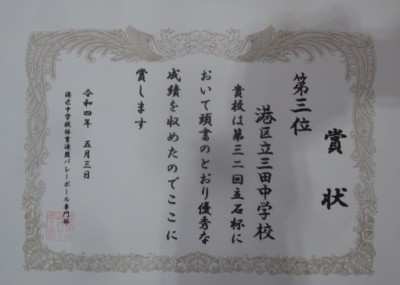 賞状
第三位
港区立三田中学校
貴校は第三二回立石杯に
おいて頭書のとおり優秀な
成績を収めたのでここに
賞します
令和四年 五月三日
港区中学校体育連盟バレーボール専門部